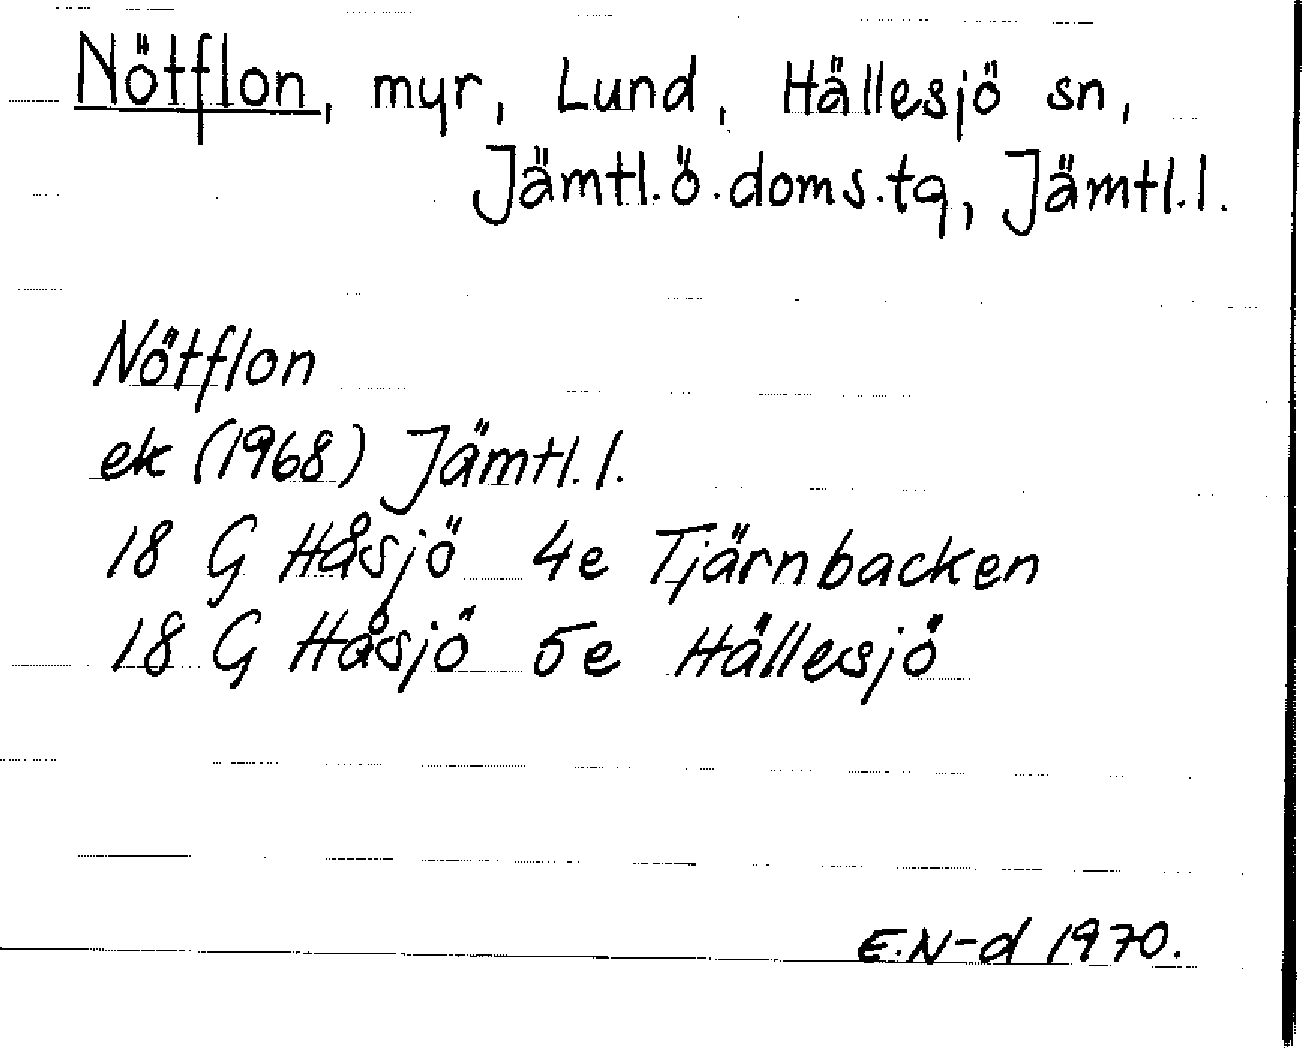 Nötflon, myr, Lund, Hällesjö sn,
Jämtl.ö.doms.tg, Jämtl.l.
Nötflon
ek (1968) Jämtl.l.
18 G Håsjö 4e Tjärnbacken
18 G Håsjö 5e Hällesjö
E.N-d 1970.